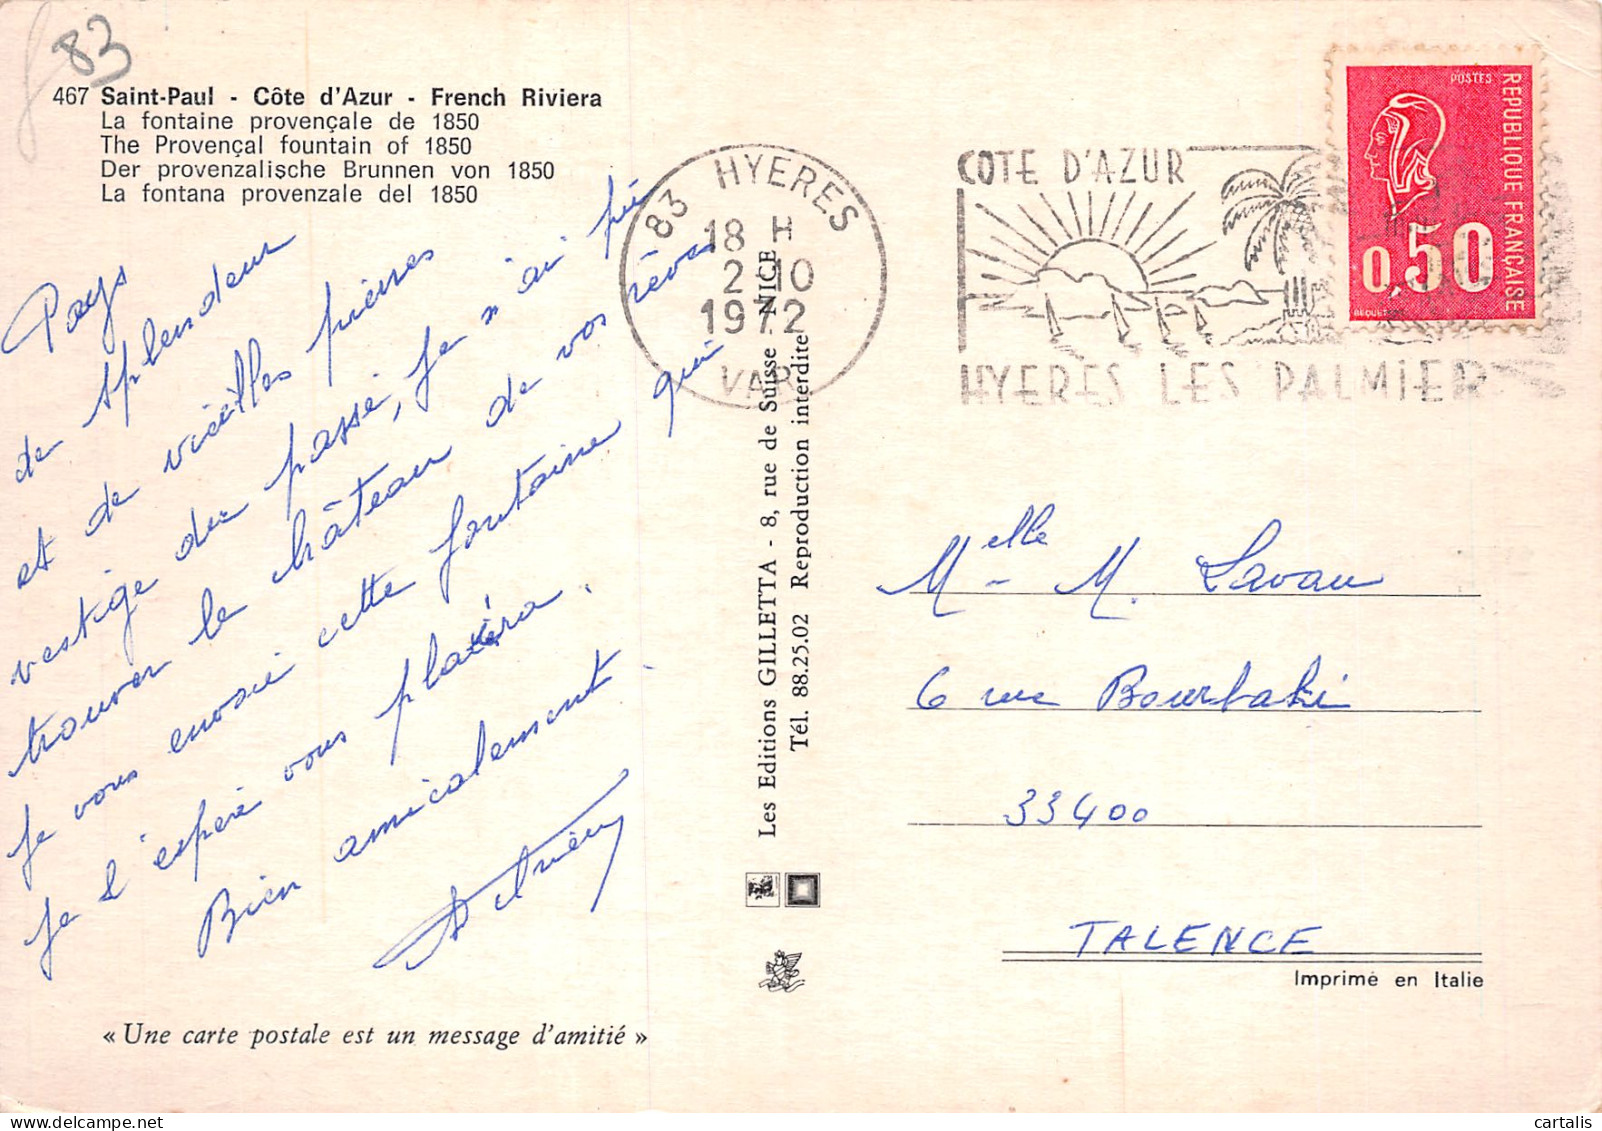 83
467 Saint-Paul - Côte d'Azur - French Riviera
La fontaine provençale de 1850
The Provençal fountain of 1850
Der provenzalische Brunnen von 1850
La fontana provenzale del 1850
Pays
de splendeur
et de vieilles pierres
vestige du passé, je n'ai pu
trouver le château de vos rêves
je vous envoie cette fontaine qui
je l'espère vous plaira.
Bien amicalement.
« Une carte postale est un message d'amitié »
Les Editions GILLETTA - 8, rue de Suisse NICE
Tél. 88.25.02 Reproduction interdite
83 HYERES
18 H
2-10
1972
VAR
COTE D'AZUR
HYERES LES PALMIERS
POSTES
REPUBLIQUE FRANÇAISE
0,50
BEQUET
Melle M. Lavau
6 rue Bourbaki
33400
TALENCE
Imprimé en Italie
cartalis